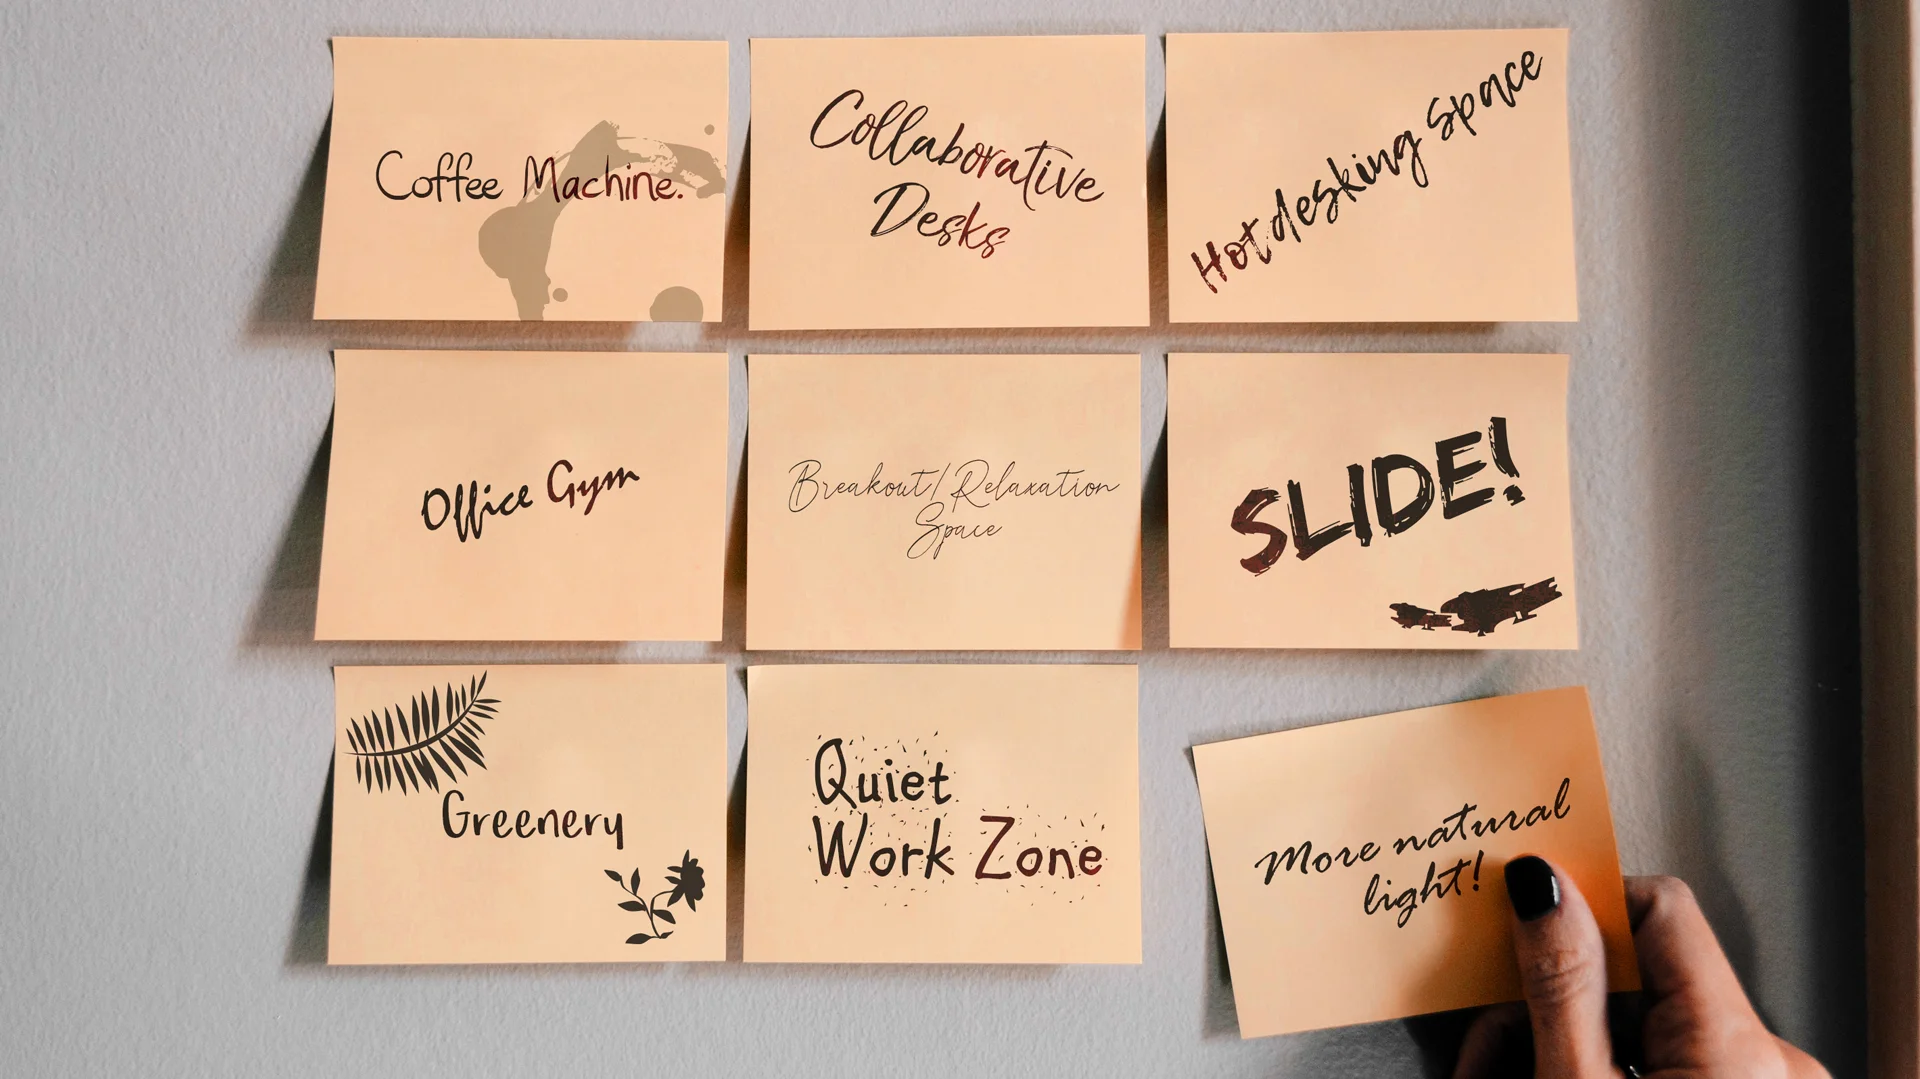 Coffee Machine.
Collaborative
Desks
Hotdesking Space
Office Gym
Breakout/Relaxation
Space
SLIDE!
Greenery
Quiet
Work Zone
More natural
light!